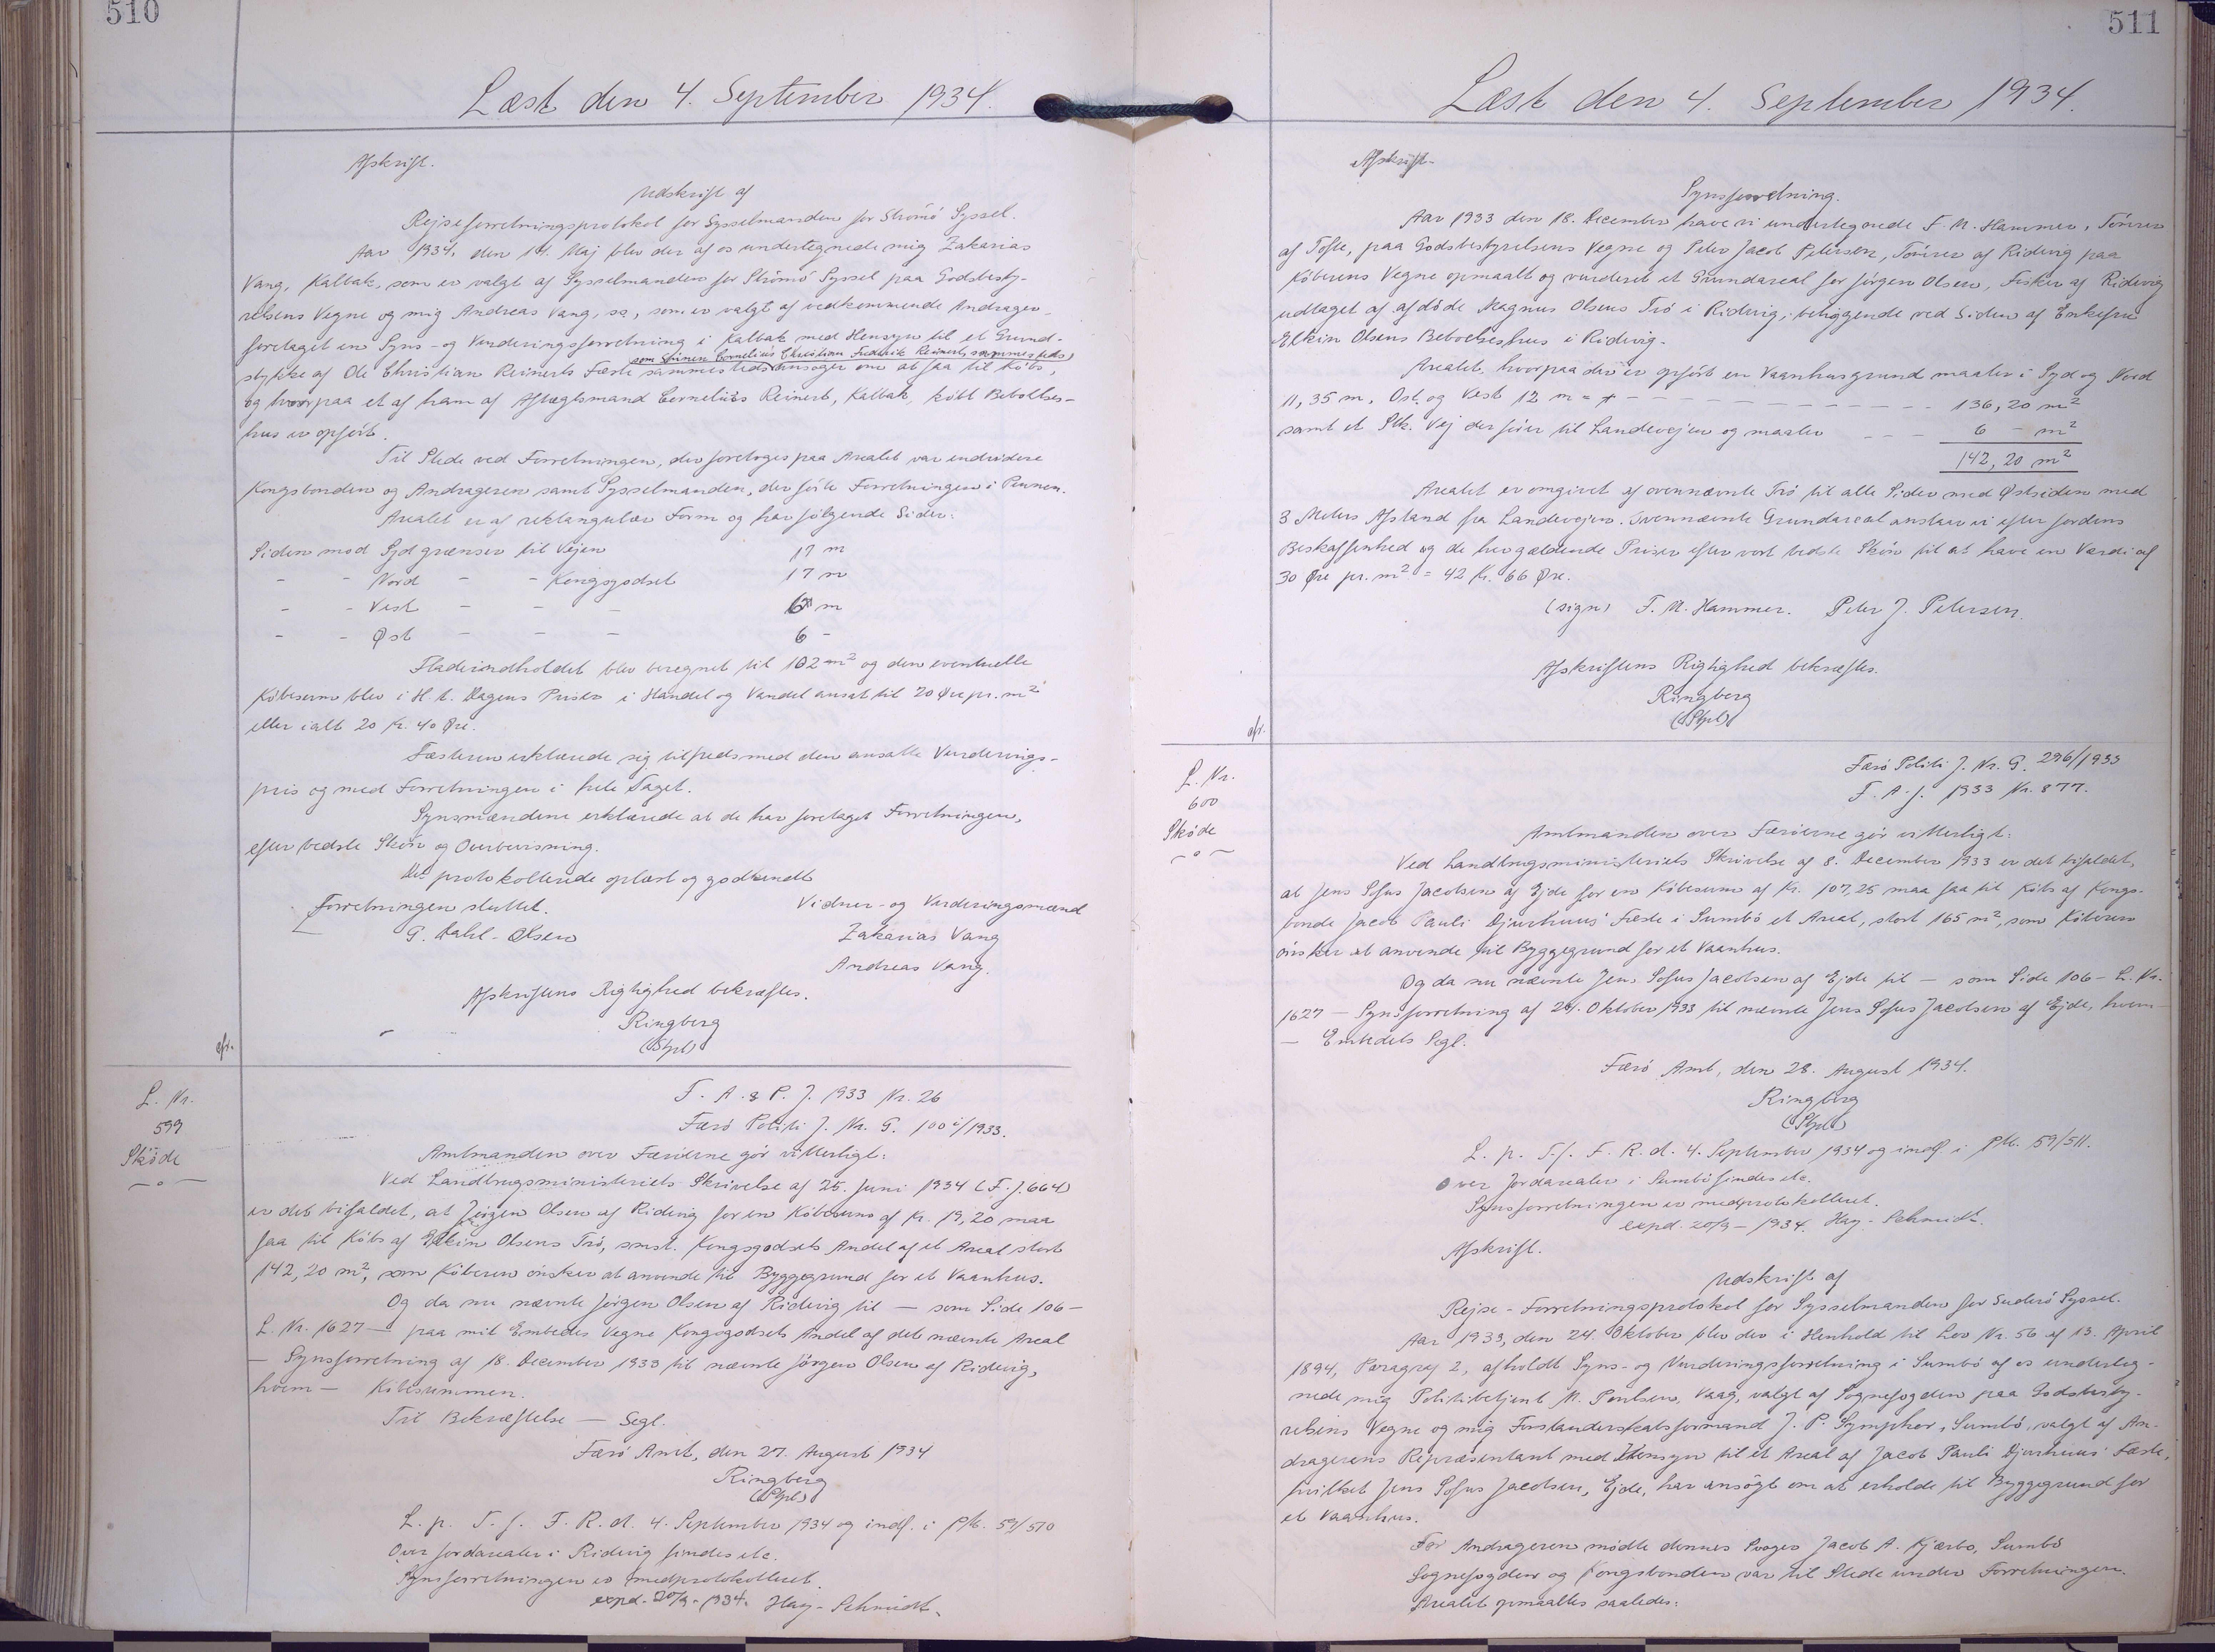 510
Læst den 4. September 1934.
Afskrift.
Udskrift af
Rejseforretningsprotokol for Sysselmanden for Strömö Syssel.
Aar 1934, den 14. Maj blev der af os undertegnede mig Zakarias
Vang, Kalbak, som er valgt af Sysselmanden for Strömö Syssel paa Godsbesty-
relsens Vegne og mig Andreas Vang, sa, som er valgt af vedkommende Andrager
foretaget en Syns- og Vurderingsforretning i Kalbak med Hensyn til et Grund-
som Svinen Cornelius Christian Frederik Reinert, sammesteds,
stykke af Ole Christian Reinerts Fæste sammesteds ansøger om at faa til Köbs,
og hvorpaa et af ham af Aftægtsmand Cornelius Reinert, Kalbak, köbt Beboelses-
hus er opfört.
Til Stede ved Forretningen, der foretoges paa Arealet var endvidere
Kongsbonden og Andrageren samt Sysselmanden, der förte Forretningen i Pennen.
Arealet er af rektangulær Form og har fölgende Sider:
Siden mod Syd grænser til Vejen 17 m
- - Nord - - Kongsgodset 17 m
- - Vest - - - 6 m
- - Øst - - - 6 -
Fladeindholdet blev beregnet til 102 m² og den eventuelle
Köbesum blev i H. t. Dagens Priser i Handel og Vandel ansat til 20 Øre pr. m²
eller ialt 20 Kr. 40 Øre.
Fæsteren erklærede sig tilfreds med den ansatte Vurderings-
pris og med Forretningen i hele Taget.
Synsmændene erklærede at de har foretaget Forretningen,
efter bedste Skön og Overbevisning.
Det protokollerede oplæst og godkendt
Forretningen sluttet. Vidner- og Vurderingsmænd
G. Dahl-Olsen Zakarias Vang
Andreas Vang.
Afskriftens Rigtighed bekræftes.
Ringberg
(Stpl)
afr.
L. Nr.
599
Sköde
F. A. & P. J. 1933 Nr. 26
Færö Politi J. Nr. G. 100 i/1933.
Amtmanden over Færöerne gör vitterligt:
Ved Landbrugsministeriets Skrivelse af 25. Juni 1934 (F. J. 664)
er det bifaldet, at Jörgen Olsen af Ridevig for en Köbesum af Kr. 19,20 maa
faa til Köbs af Elkin Olsens Trö, smst. Kongsgodsets Andel af et Areal stort
142,20 m², som Köberen önsker at anvende til Byggegrund for et Vaanhus.
Og da nu nævnte Jörgen Olsen af Ridevig til — som Side 106 —
L. Nr. 1627 — paa mit Embedes Vegne Kongsgodsets Andel af det nævnte Areal
— Synsforretning af 18. December 1933 til nævnte Jörgen Olsen af Ridevig,
hvem — Köbesummen.
Til Bekræftelse — Segl.
Færö Amt, den 27. August 1934
Ringberg
(Stpl)
L. p. T. f. F. R. d. 4. September 1934 og indf. i Ptk. 59/510
Over Jordarealer i Ridevig findes etc.
Synsforretningen er medprotokolleret.
expd. 20/9-1934. Hay-Schmidt.
511
Læst den 4. September 1934.
Afskrift.
Synsforretning.
Aar 1933 den 18. December have vi undertegnede F. M. Hammer, Tömrer
af Tofte, paa Godsbestyrelsens Vegne og Peter Jacob Petersen, Tömrer af Ridevig paa
Köberens Vegne opmaalt og vurderet et Grundareal for Jörgen Olsen, Fisker af Ridevig
udtaget af afdöde Magnus Olsens Trö i Ridevig, beliggende ved Siden af Enkefru
Elkin Olsens Beboelseshus i Ridevig.
Arealet, hvorpaa der er opfört en Vaanhusgrund maaler i Syd og Nord
11,35 m, Öst og Vest 12 m = - - - - 136,20 m²
samt et Stk. Vej der förer til Landevejen og maaler - - - 6 - m²
142,20 m²
Arealet er omgivet af ovennævnte Trö til alle Sider med Østsiden med
3 Meters Afstand fra Landevejen. Ovennævnte Grundareal anslaar vi efter Jordens
Beskaffenhed og de her gældende Priser efter vort bedste Skön til at have en Værdi af
30 Øre pr. m² = 42 Kr. 66 Øre.
(sign) F. M. Hammer. Peter J. Petersen.
Afskriftens Rigtighed bekræftes.
Ringberg
(Stpl)
afr.
L. Nr.
600
Sköde
Færö Politi J. Nr. G. 296/1933
F. A. J. 1933 Nr. 877.
Amtmanden over Færöerne gör vitterligt:
Ved Landbrugsministeriets Skrivelse af 8. December 1933 er det bifaldet,
at Jens Sofus Jacobsen af Ejde for en Köbesum af Kr. 107,25 maa faa til Köbs af Kongs-
bonde Jacob Pauli Djurhuus' Fæste i Sumbö et Areal, stort 165 m², som Köberen
önsker at anvende til Byggegrund for et Vaanhus.
Og da nu nævnte Jens Sofus Jacobsen af Ejde til — som Side 106 — L. Nr.
1627 — Synsforretning af 24. Oktober 1933 til nævnte Jens Sofus Jacobsen af Ejde, hvem —
— Embedets Segl.
Færö Amt, den 28. August 1934.
Ringberg
(Stpl)
L. p. T. f. F. R. d. 4. September 1934 og indf. i Ptk. 59/511.
Over Jordarealer i Sumbö findes etc.
Synsforretningen er medprotokolleret.
expd. 20/9-1934. Hay-Schmidt.
Afskrift.
Udskrift af
Rejse-Forretningsprotokol for Sysselmanden for Suderö Syssel.
Aar 1933, den 24. Oktober blev der i Henhold til Lov Nr. 56 af 13. April
1894, Paragraf 2, afholdt Syns- og Vurderingsforretning i Sumbö af os underteg-
nede mig Politibetjent M. Poulsen, Vaag, valgt af Sognefogden paa Godsbesty-
relsens Vegne og mig Forstanderskabsformand J. P. Symphor, Sumbö, valgt af An-
dragerens Repræsentant med Hensyn til et Areal af Jacob Pauli Djurhuus' Fæste,
hvilket Jens Sofus Jacobsen, Ejde, har ansögt om at erholde til Byggegrund for
et Vaanhus.
For Andrageren mödte dennes Svoger Jacob A. Kjærbo, Sumbö
Sognefogden og Kongsbonden var til Stede under Forretningen.
Arealet opmaaltes saaledes: